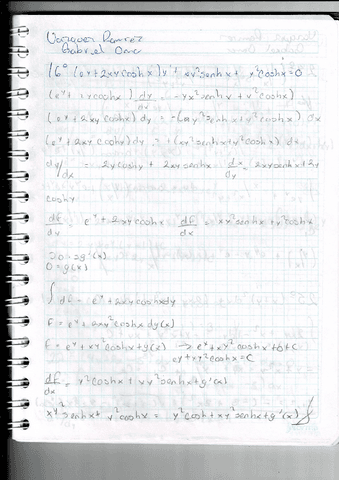 Gabriel Omar
16° (e^y + 2xy cosh x) y' + xy² senh x + y² cosh x = 0
(e^y + xy cosh x) dy/dx = -yx² senh x + y² cosh x)
(e^y + 2xy cosh x) dy = -(xy² senh x + y² cosh x) dx
(e^y + 2xy cosh x) dy = +(xy² senh x + y² cosh x) dx
dy/dx = 2y cosh y + 2xy senh x dx/dy = 2xy senh x + 2y
cosh x
dF/dy = e^y + 2xy cosh x dF/dx = xy² senh x + y² cosh x
0 = g'(x)
0 = g(x)
∫ dF = e^y + 2xy cosh x dy
F = e^y + xy² cosh x + g(x) → e^y + xy² cosh x + 0 + C
e^y + xy² cosh x = C
dF/dx = y² cosh x + xy² senh x + g'(x)
xy² senh x + y² cosh x = y² cosh + xy² senh x + g'(x)